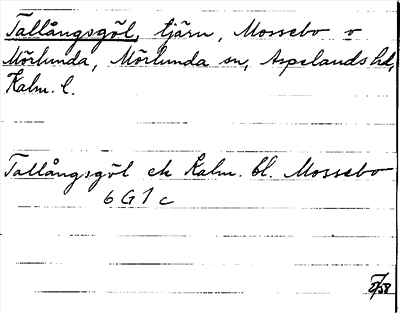 Tallångsgöl, tjärn, Mossebo o
Mörlunda, Mörlunda sn, Aspelands hd,
Kalm. l.
Tallångsgöl ek Kalm. bl. Mossebo
6 G 1 c